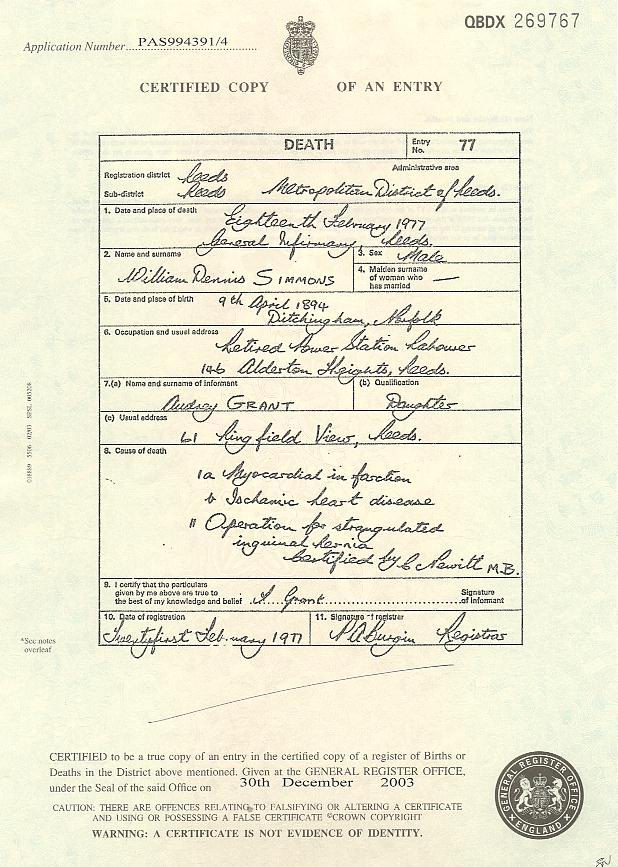 QBDX 269767
Application Number PAS994391/4
CERTIFIED COPY OF AN ENTRY
DEATH
Entry No. 77
Registration district Leeds
Administrative area
Sub-district Leeds Metropolitan District of Leeds.
1. Date and place of death
Eighteenth February 1977
General Infirmary, Leeds.
2. Name and surname
William Dennis SIMMONS
3. Sex Male
4. Maiden surname
of woman who
has married —
5. Date and place of birth 9th April 1894
Ditchingham, Norfolk
6. Occupation and usual address
Retired Power Station Labourer
146 Alderton Heights, Leeds.
7.(a) Name and surname of informant
Audrey GRANT
(b) Qualification
Daughter
(c) Usual address
61 Ringfield View, Leeds.
8. Cause of death
1a Myocardial infarction
b Ischamic heart disease
11 Operation for strangulated
inguinal hernia
Certified by C Newitt M.B.
9. I certify that the particulars
given by me above are true to
the best of my knowledge and belief A. Grant Signature
of informant
10. Date of registration
Twentyfirst February 1977
11. Signature of registrar
Burgin Registrar
*See notes
overleaf
CERTIFIED to be a true copy of an entry in the certified copy of a register of Births or
Deaths in the District above mentioned. Given at the GENERAL REGISTER OFFICE,
under the Seal of the said Office on 30th December 2003
CAUTION: THERE ARE OFFENCES RELATING TO FALSIFYING OR ALTERING A CERTIFICATE
AND USING OR POSSESSING A FALSE CERTIFICATE ©CROWN COPYRIGHT
WARNING: A CERTIFICATE IS NOT EVIDENCE OF IDENTITY.
GENERAL REGISTER OFFICE
ENGLAND